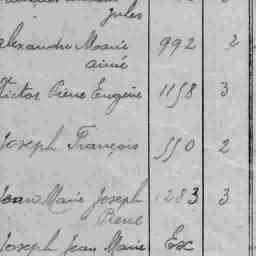 Jules
Alexandre Marie 992 2
aimé
Victor Pierre Eugène 1158 3
Joseph François 550 2
Jean Marie Joseph 1283 3
Pierre
Joseph Jean Marie Ex